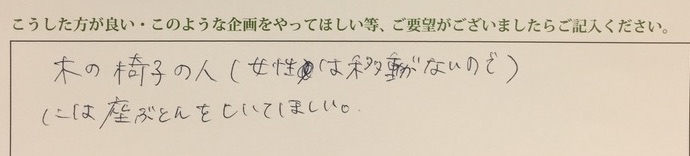 こうした方が良い・このような企画をやってほしい等、ご要望がございましたらご記入ください。
木の椅子の人(女性は移動がないので)
には座ぶとんをしいてほしい。